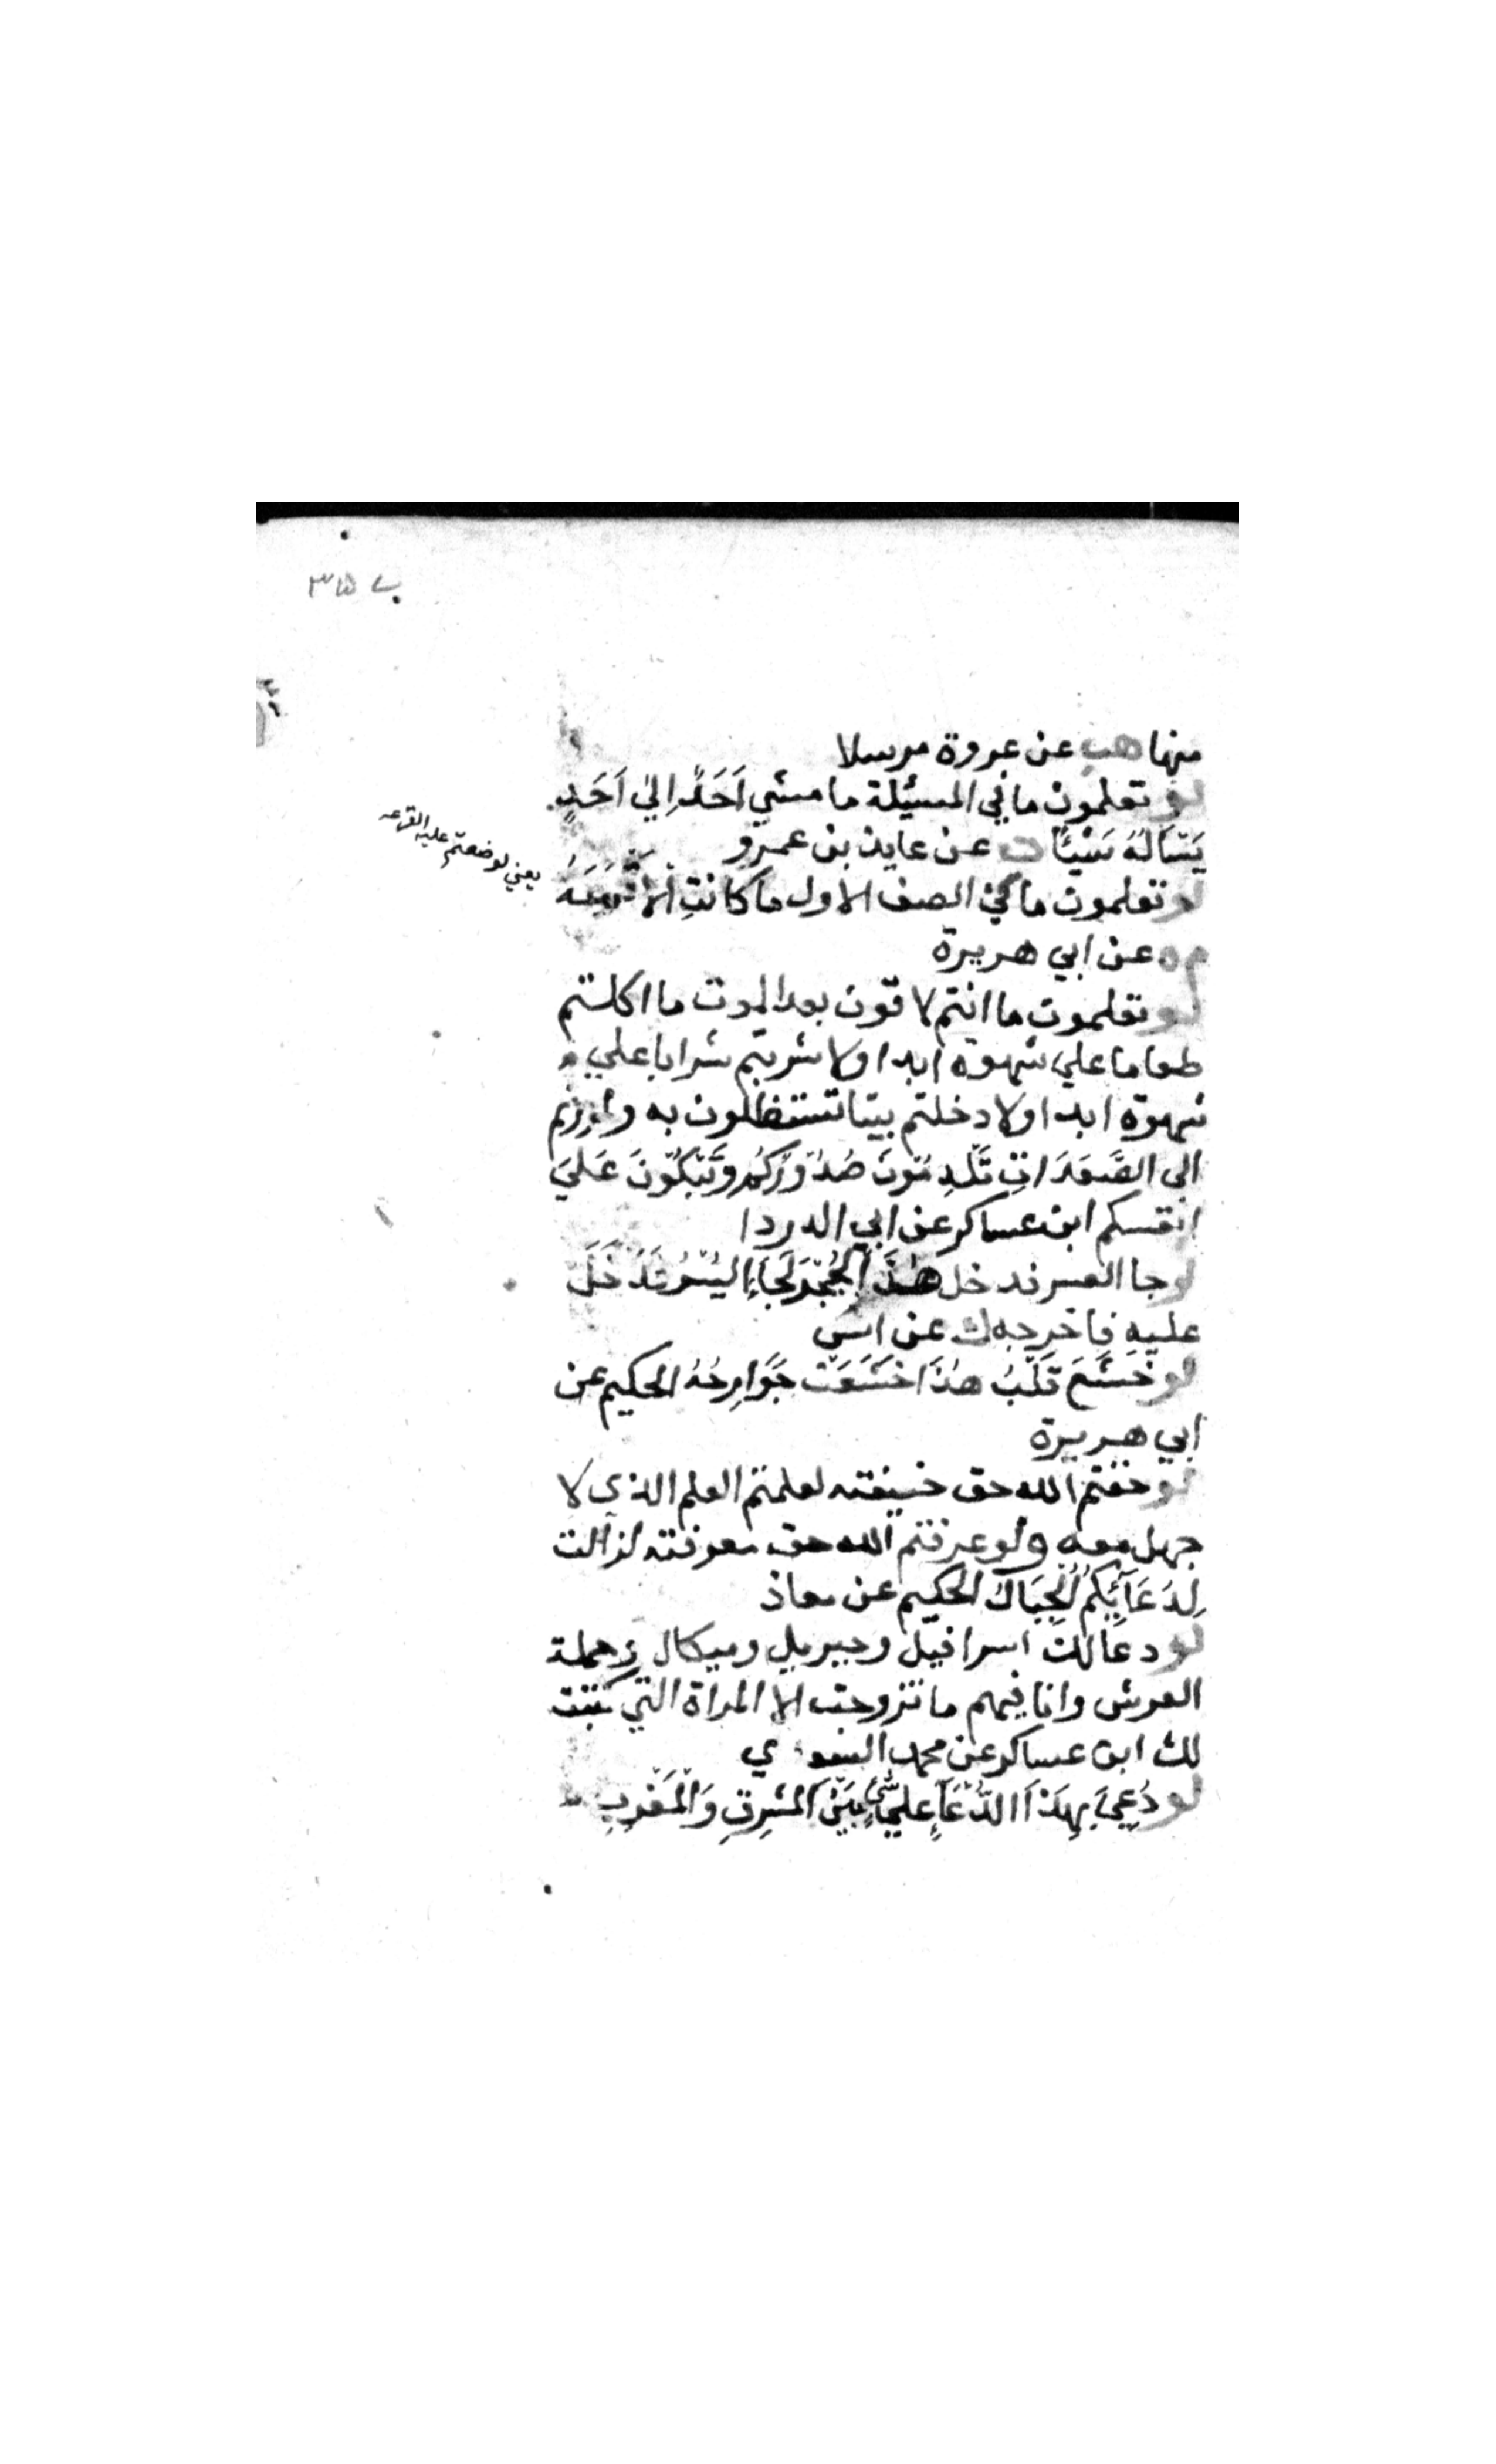 منها هب عن عروة مرسلا
لو تعلمون ما في المسئلة ما مشي اَحَدٌ اِليٰ اَحَدٍ
يَسْأَلُهُ شَيْئًا ن عن عايذ بن عمرو
لو تعلمون ما في الصف الاول ما كانتِ الا قرعة
يعني لو ضعتم عليه القرعه
م ه عن ابي هريرة
لو تعلمون ما انتم لاقون بعد الموت ما اكلتم
طعاما علي شهوة ابدا ولا شربتم شرابا علي
شهوة ابدا ولا دخلتم بيتا تستظلون به ولمررتم
الي الصَّعَدَاتِ تَلْدِمُونَ صُدُورَكُمْ وَتَبْكُونَ عَلَيَ
انفسكم ابن عساكر عن ابي الدردا
لو جا العسر فدخل هٰذَا الْجُحْرَ لَجَاءَ اليُسْرُ فَدَخَلَ
عليه فاخرجه ك عن انس
لو خَشَعَ قَلْبُ هٰذَا خَشَعَتْ جَوَارِحُهُ الحكيم عن
ابي هريرة
لو خفتم الله حق خيفته لعلمتم العلم الذي لا
جهل معه ولو عرفتم الله حق معرفته لزالت
لِدُعَآئِكُمُ الْجِبَالُ الحكيم عن معاذ
لو دعا لك اسرافيل وجبريل وميكال وحملة
العرش وانا فيهم ما تزوجت الا المراة التي كتبت
لك ابن عساكر عن محمد السعدي
لو دُعِيَ بِهٰذَا الدُّعَآءِ علي شئ بَيْنَ المَشْرِقِ وَالْمَغْرِبِ